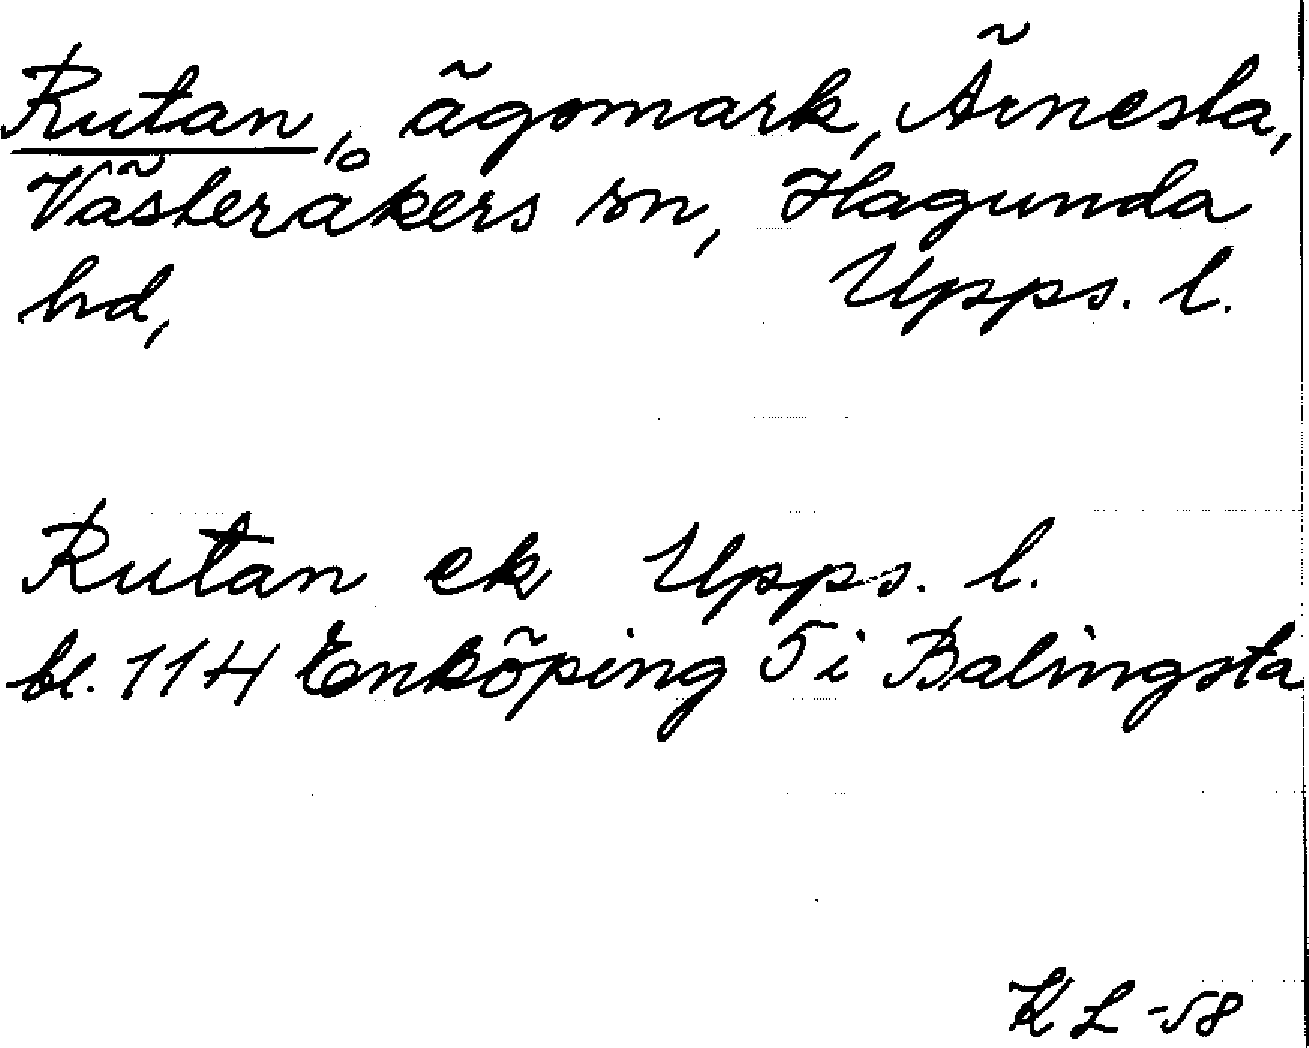 Rutan, ägomark, Ärnesta,
Västeråkers sn, Hagunda
hd, Upps. l.
Rutan ek Upps. l.
bl. 11H Enköping 5 i Balingsta
KL -58